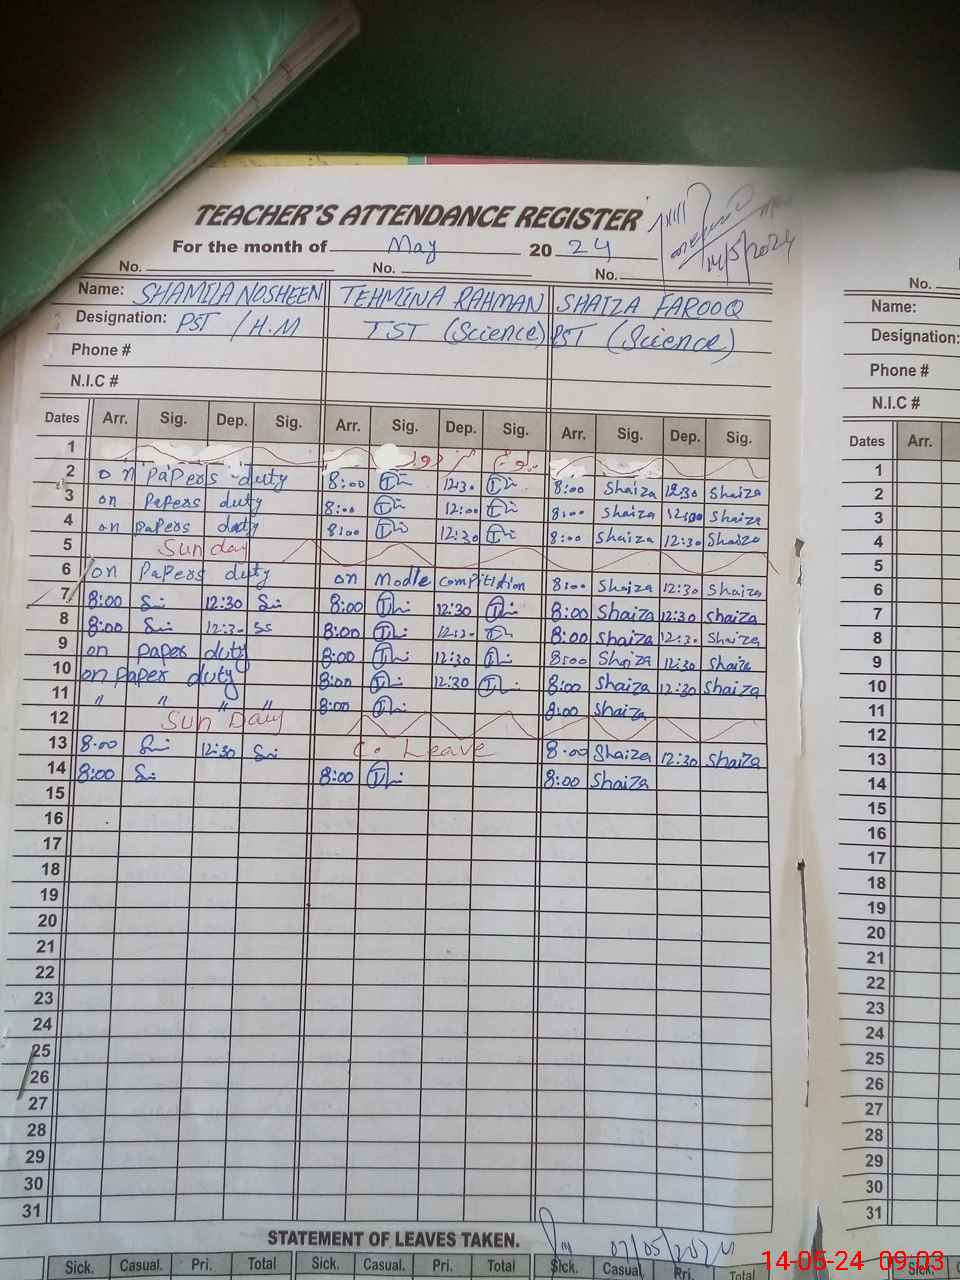 TEACHER'S ATTENDANCE REGISTER
For the month of May 20 24
14/5/2024
No. No. No.
Name: SHAMILA NOSHEEN TEHMINA RAHMAN SHAIZA FAROOQ
Designation: PST / H.M TST (Science) PST (Science)
Phone #
N.I.C #
Dates Arr. Sig. Dep. Sig. Arr. Sig. Dep. Sig. Arr. Sig. Dep. Sig.
1
2 on papers duty 8:00 12:30 8:00 Shaiza 12:30 Shaiza
3 on papers duty 8:00 12:00 8:00 Shaiza 12:00 Shaiza
4 on papers duty 8:00 12:30 8:00 Shaiza 12:30 Shaiza
5 Sunday
6 on Papers duty on Modle compitition 8:00 Shaiza 12:30 Shaiza
7 8:00 12:30 8:00 12:30 8:00 Shaiza 12:30 Shaiza
8 8:00 12:30 SS 8:00 12:30 8:00 Shaiza 12:30 Shaiza
9 on paper duty 8:00 12:30 8:00 Shaiza 12:30 Shaiza
10 on paper duty 8:00 12:30 8:00 Shaiza 12:30 Shaiza
11 " " " " 8:00 8:00 Shaiza
12 Sun Day
13 8:00 12:30 C. Leave 8:00 Shaiza 12:30 Shaiza
14 8:00 8:00 8:00 Shaiza
15
16
17
18
19
20
21
22
23
24
25
26
27
28
29
30
31
STATEMENT OF LEAVES TAKEN.
07/05/2024
Sick. Casual. Pri. Total Sick. Casual. Pri. Total Sick. Casual. Pri. Total
No.
Name:
Designation:
Phone #
N.I.C #
Dates Arr.
1
2
3
4
5
6
7
8
9
10
11
12
13
14
15
16
17
18
19
20
21
22
23
24
25
26
27
28
29
30
31
Sick.
14-05-24 09:03